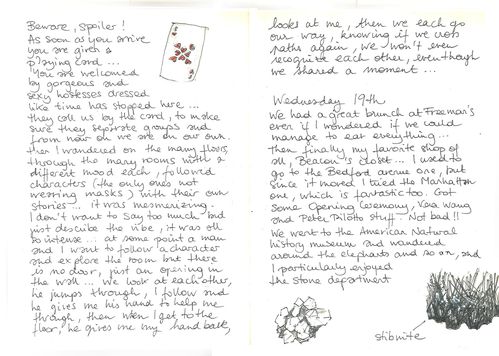 Beware, spoiler !
As soon as you arrive
you are given a
playing card ...
You are welcomed
by gorgeous and
sexy hostesses dressed
like time has stopped here ...
they call us by the card, to make
sure they separate groups and
from now on we are on our own.
then I wandered on the many floors,
through the many rooms with a
different mood each, followed
characters (the only ones not
wearing masks) with their own
stories .. it was mesmerizing.
I don't want to say too much but
just describe the vibe, it was all
so intense ... at some point a man
and I want to follow a character
and explore the room but there
is no door, just an opening in
the wall ... We look at each other,
he jumps through, I follow and
he gives me his hand to help me
through, then when I get to the
floor, he gives me my hand back,
looks at me, then we each go
our way, knowing if we cross
paths again, we won't even
recognize each other, even though
we shared a moment ...
Wednesday 19th
We had a great brunch at Freeman's
even if I wondered if we could
manage to eat everything ...
then finally my favorite shop of
all, Beacon's closet ... I used to
go to the Bedford avenue one, but
since it moved I tried the Manhattan
one, which is fantastic too. Got
some Opening Ceremony, Vera Wang
and Peter Pilotto stuff. Not bad !!
We went to the American Natural
history museum and wandered
around the elephants and so on, and
I particularly enjoyed
the stone department
stibnite